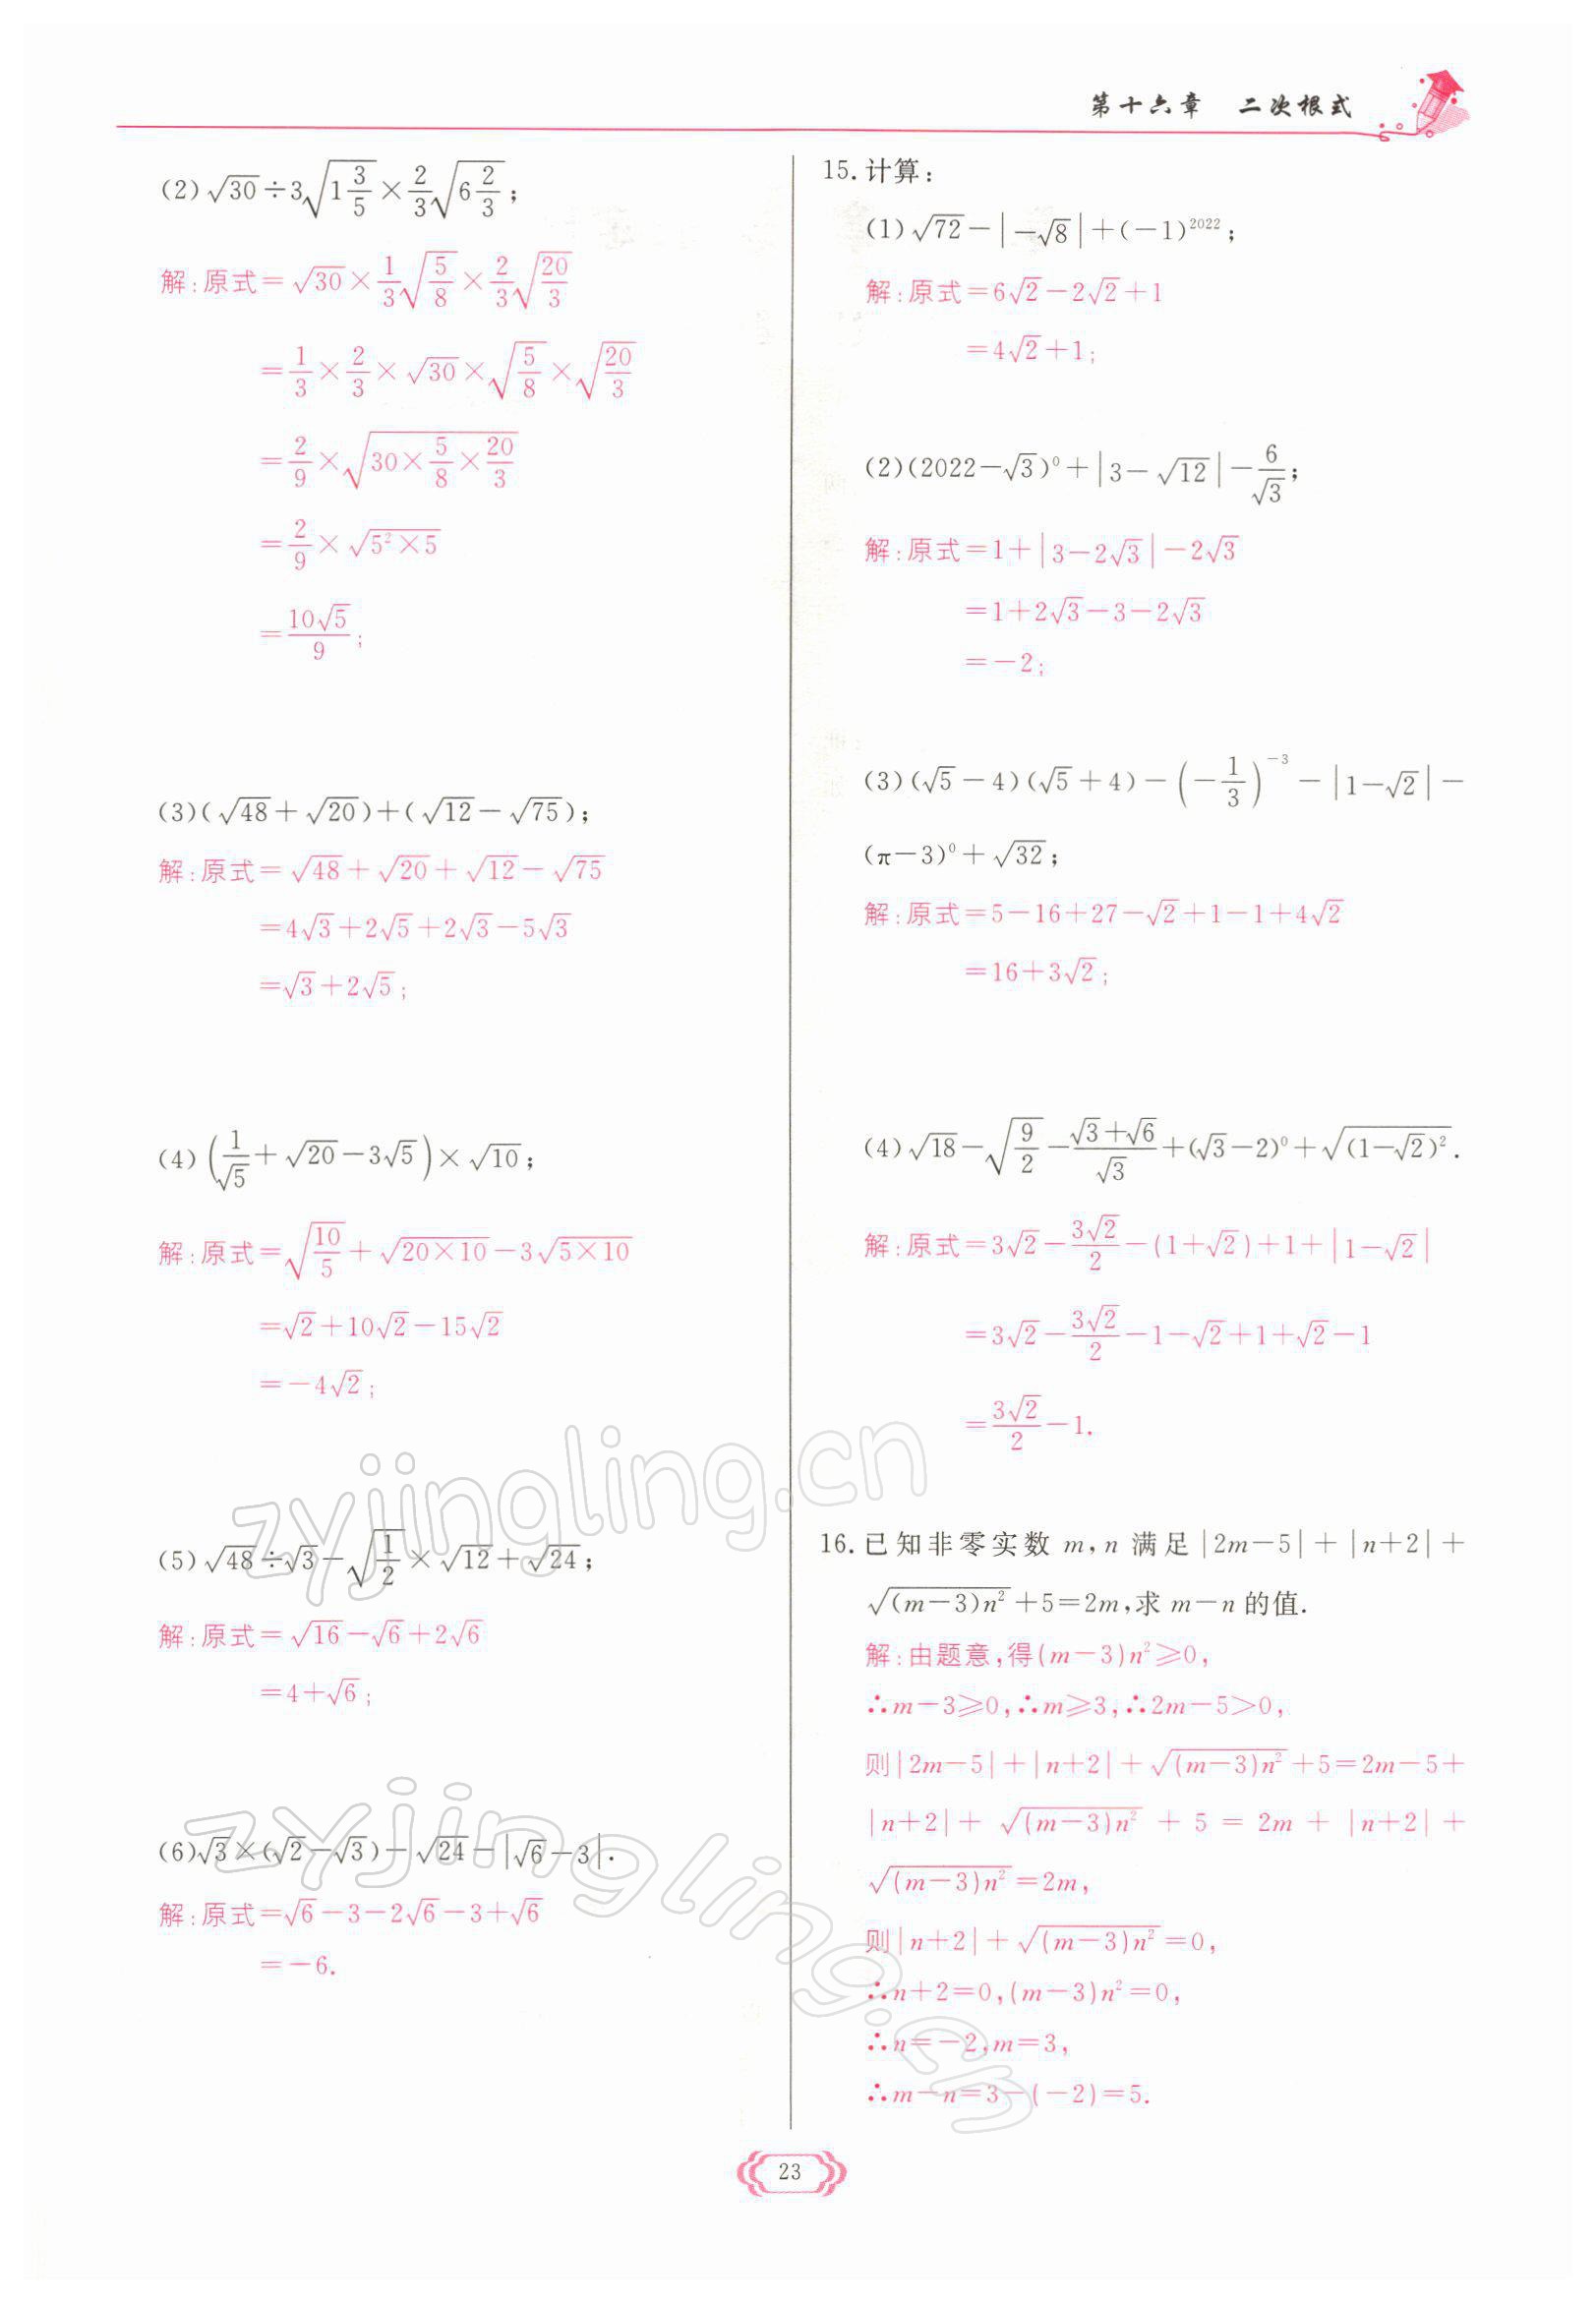 第十六章 二次根式
(2)√30÷3√(1 3/5)×2/3√(6 2/3);
解:原式=√30×1/3√(5/8)×2/3√(20/3)
=1/3×2/3×√30×√(5/8)×√(20/3)
=2/9×√(30×5/8×20/3)
=2/9×√(5²×5)
=10√5/9;
(3)(√48+√20)+(√12-√75);
解:原式=√48+√20+√12-√75
=4√3+2√5+2√3-5√3
=√3+2√5;
(4)(1/√5+√20-3√5)×√10;
解:原式=√(10/5)+√(20×10)-3√(5×10)
=√2+10√2-15√2
=-4√2;
(5)√48÷√3-√(1/2)×√12+√24;
解:原式=√16-√6+2√6
=4+√6;
(6)√3×(√2-√3)-√24-|√6-3|.
解:原式=√6-3-2√6-3+√6
=-6.
15.计算:
(1)√72-|-√8|+(-1)²⁰²²;
解:原式=6√2-2√2+1
=4√2+1;
(2)(2022-√3)⁰+|3-√12|-6/√3;
解:原式=1+|3-2√3|-2√3
=1+2√3-3-2√3
=-2;
(3)(√5-4)(√5+4)-(-1/3)⁻³-|1-√2|-
(π-3)⁰+√32;
解:原式=5-16+27-√2+1-1+4√2
=16+3√2;
(4)√18-√(9/2)-(√3+√6)/√3+(√3-2)⁰+√((1-√2)²).
解:原式=3√2-3√2/2-(1+√2)+1+|1-√2|
=3√2-3√2/2-1-√2+1+√2-1
=3√2/2-1.
16.已知非零实数m,n满足|2m-5|+|n+2|+
√((m-3)n²)+5=2m,求m-n的值.
解:由题意,得(m-3)n²≥0,
∴m-3≥0,∴m≥3,∴2m-5>0,
则|2m-5|+|n+2|+√((m-3)n²)+5=2m-5+
|n+2|+√((m-3)n²)+5=2m+|n+2|+
√((m-3)n²)=2m,
则|n+2|+√((m-3)n²)=0,
∴n+2=0,(m-3)n²=0,
∴n=-2,m=3,
∴m-n=3-(-2)=5.
23
zyjingling.cn
zyjingling.cn